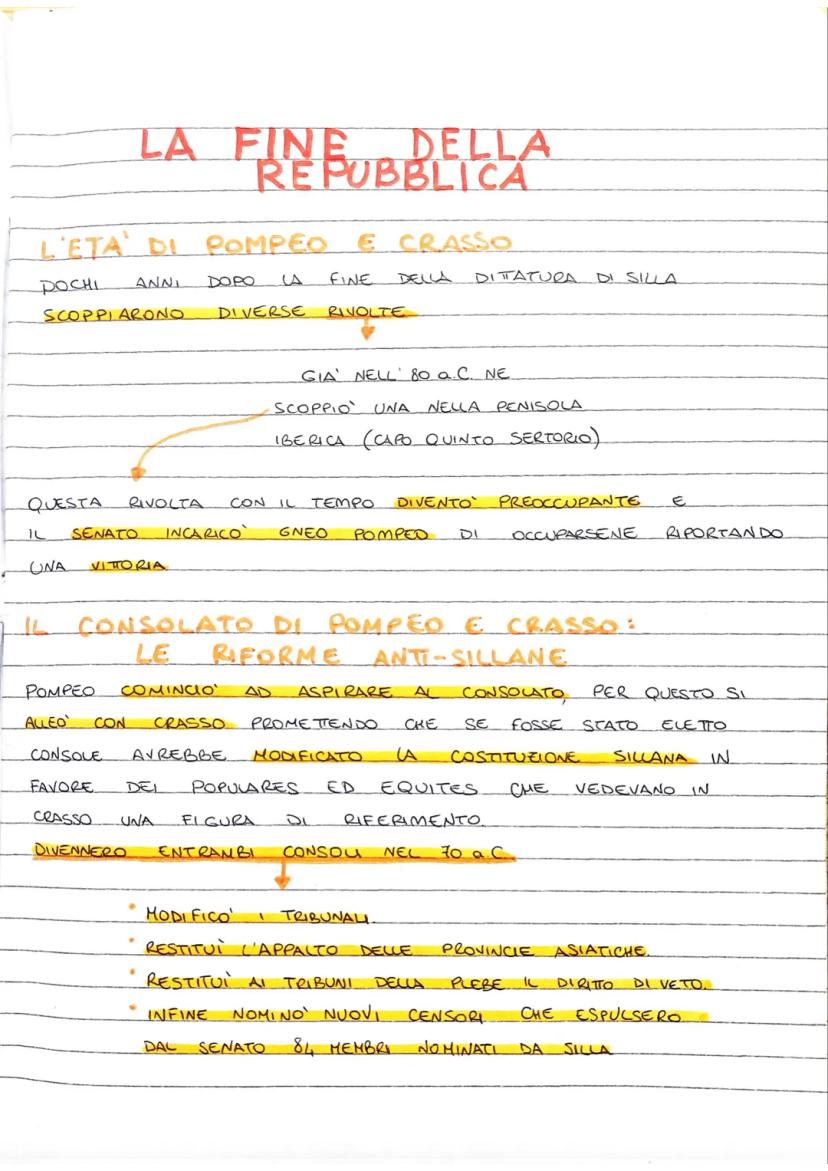 LA FINE DELLA
REPUBBLICA
L'ETA' DI POMPEO E CRASSO
POCHI ANNI DOPO LA FINE DELLA DITTATURA DI SILLA
SCOPPIARONO DIVERSE RIVOLTE
GIA' NELL' 80 a.C. NE
SCOPPIO' UNA NELLA PENISOLA
IBERICA (CAPO QUINTO SERTORIO)
QUESTA RIVOLTA CON IL TEMPO DIVENTO' PREOCCUPANTE E
IL SENATO INCARICO' GNEO POMPEO DI OCCUPARSENE RIPORTANDO
UNA VITTORIA
IL CONSOLATO DI POMPEO E CRASSO:
LE RIFORME ANTI-SILLANE
POMPEO COMINCIO' AD ASPIRARE AL CONSOLATO, PER QUESTO SI
ALLEO' CON CRASSO PROMETTENDO CHE SE FOSSE STATO ELETTO
CONSOLE AVREBBE MODIFICATO LA COSTITUZIONE SILLANA IN
FAVORE DEI POPULARES ED EQUITES CHE VEDEVANO IN
CRASSO UNA FIGURA DI RIFERIMENTO.
DIVENNERO ENTRAMBI CONSOLI NEL 70 a.C.
• MODIFICO' I TRIBUNALI.
• RESTITUÌ L'APPALTO DELLE PROVINCIE ASIATICHE.
• RESTITUÌ AI TRIBUNI DELLA PLEBE IL DIRITTO DI VETO.
• INFINE NOMINO' NUOVI CENSORI CHE ESPULSERO
DAL SENATO 84 MEMBRI NOMINATI DA SILLA